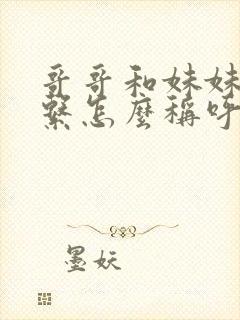 哥哥和妹妹
繫怎麼稱呼
墨妖